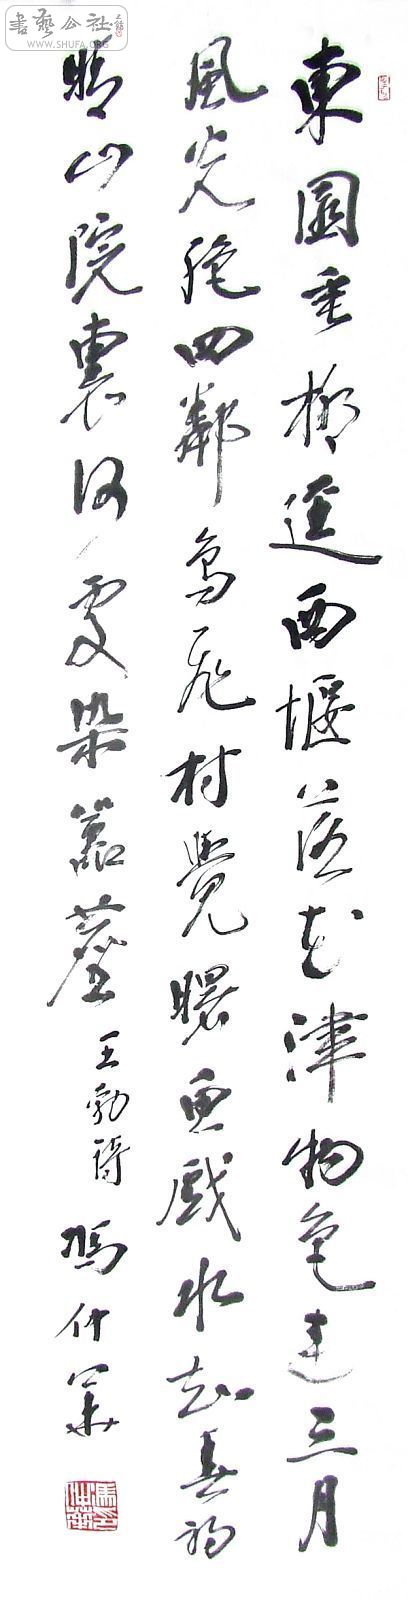 書藝公社
WWW.SHUFA.ORG
東園垂柳逕西堰落花津物色連三月
風光絶四鄰鳥飛村覺曙魚戲水知春初
晴山院裏何處染囂塵 王勃詩 馮